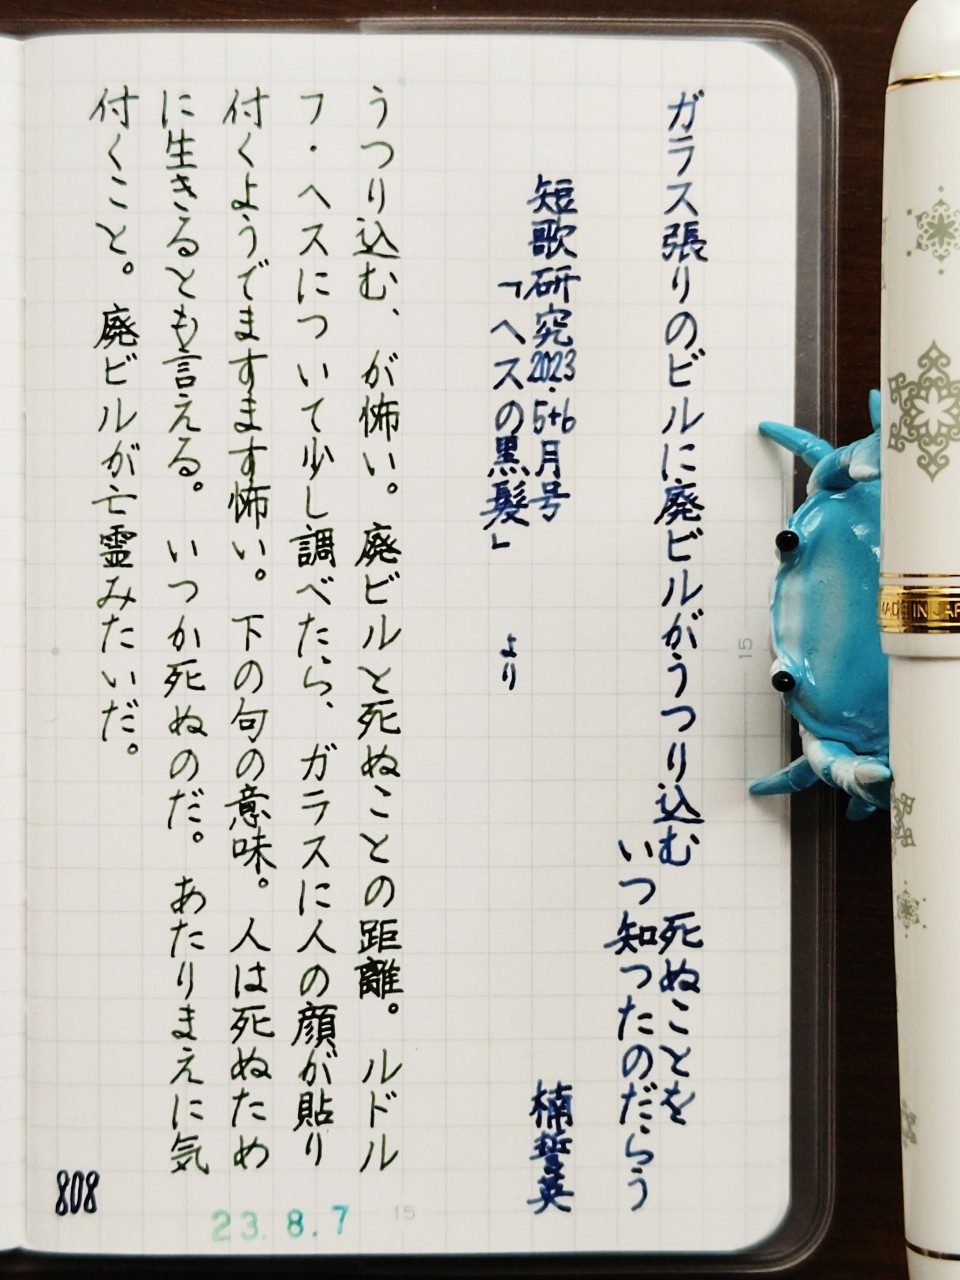 ガラス張りのビルに廃ビルがうつり込む　死ぬことを
いつ知つたのだらう
短歌研究2023.5+6月号
楠誓英
「ヘスの黒髪」　より
うつり込む、が怖い。廃ビルと死ぬことの距離。ルドル
フ・ヘスについて少し調べたら、ガラスに人の顔が貼り
付くようでますます怖い。下の句の意味。人は死ぬため
に生きるとも言える。いつか死ぬのだ。あたりまえに気
付くこと。廃ビルが亡霊みたいだ。
808
23.8.7
15
15
MADE IN JAP